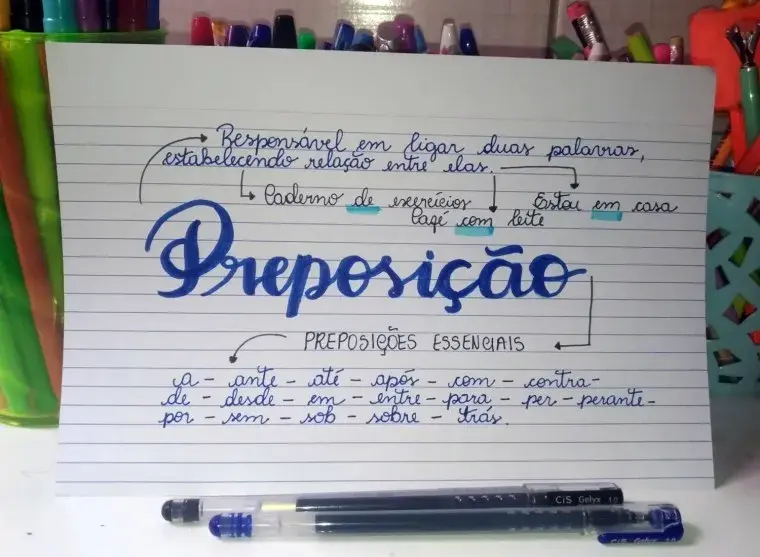 Responsável em ligar duas palavras,
estabelecendo relação entre elas.
Caderno de exercícios
Café com leite
Estou em casa
Preposição
PREPOSIÇÕES ESSENCIAIS
a - ante - até - após - com - contra -
de - desde - em - entre - para - per - perante -
por - sem - sob - sobre - trás.
CiS Gelyx 1.0
CiS Gelyx 1.0